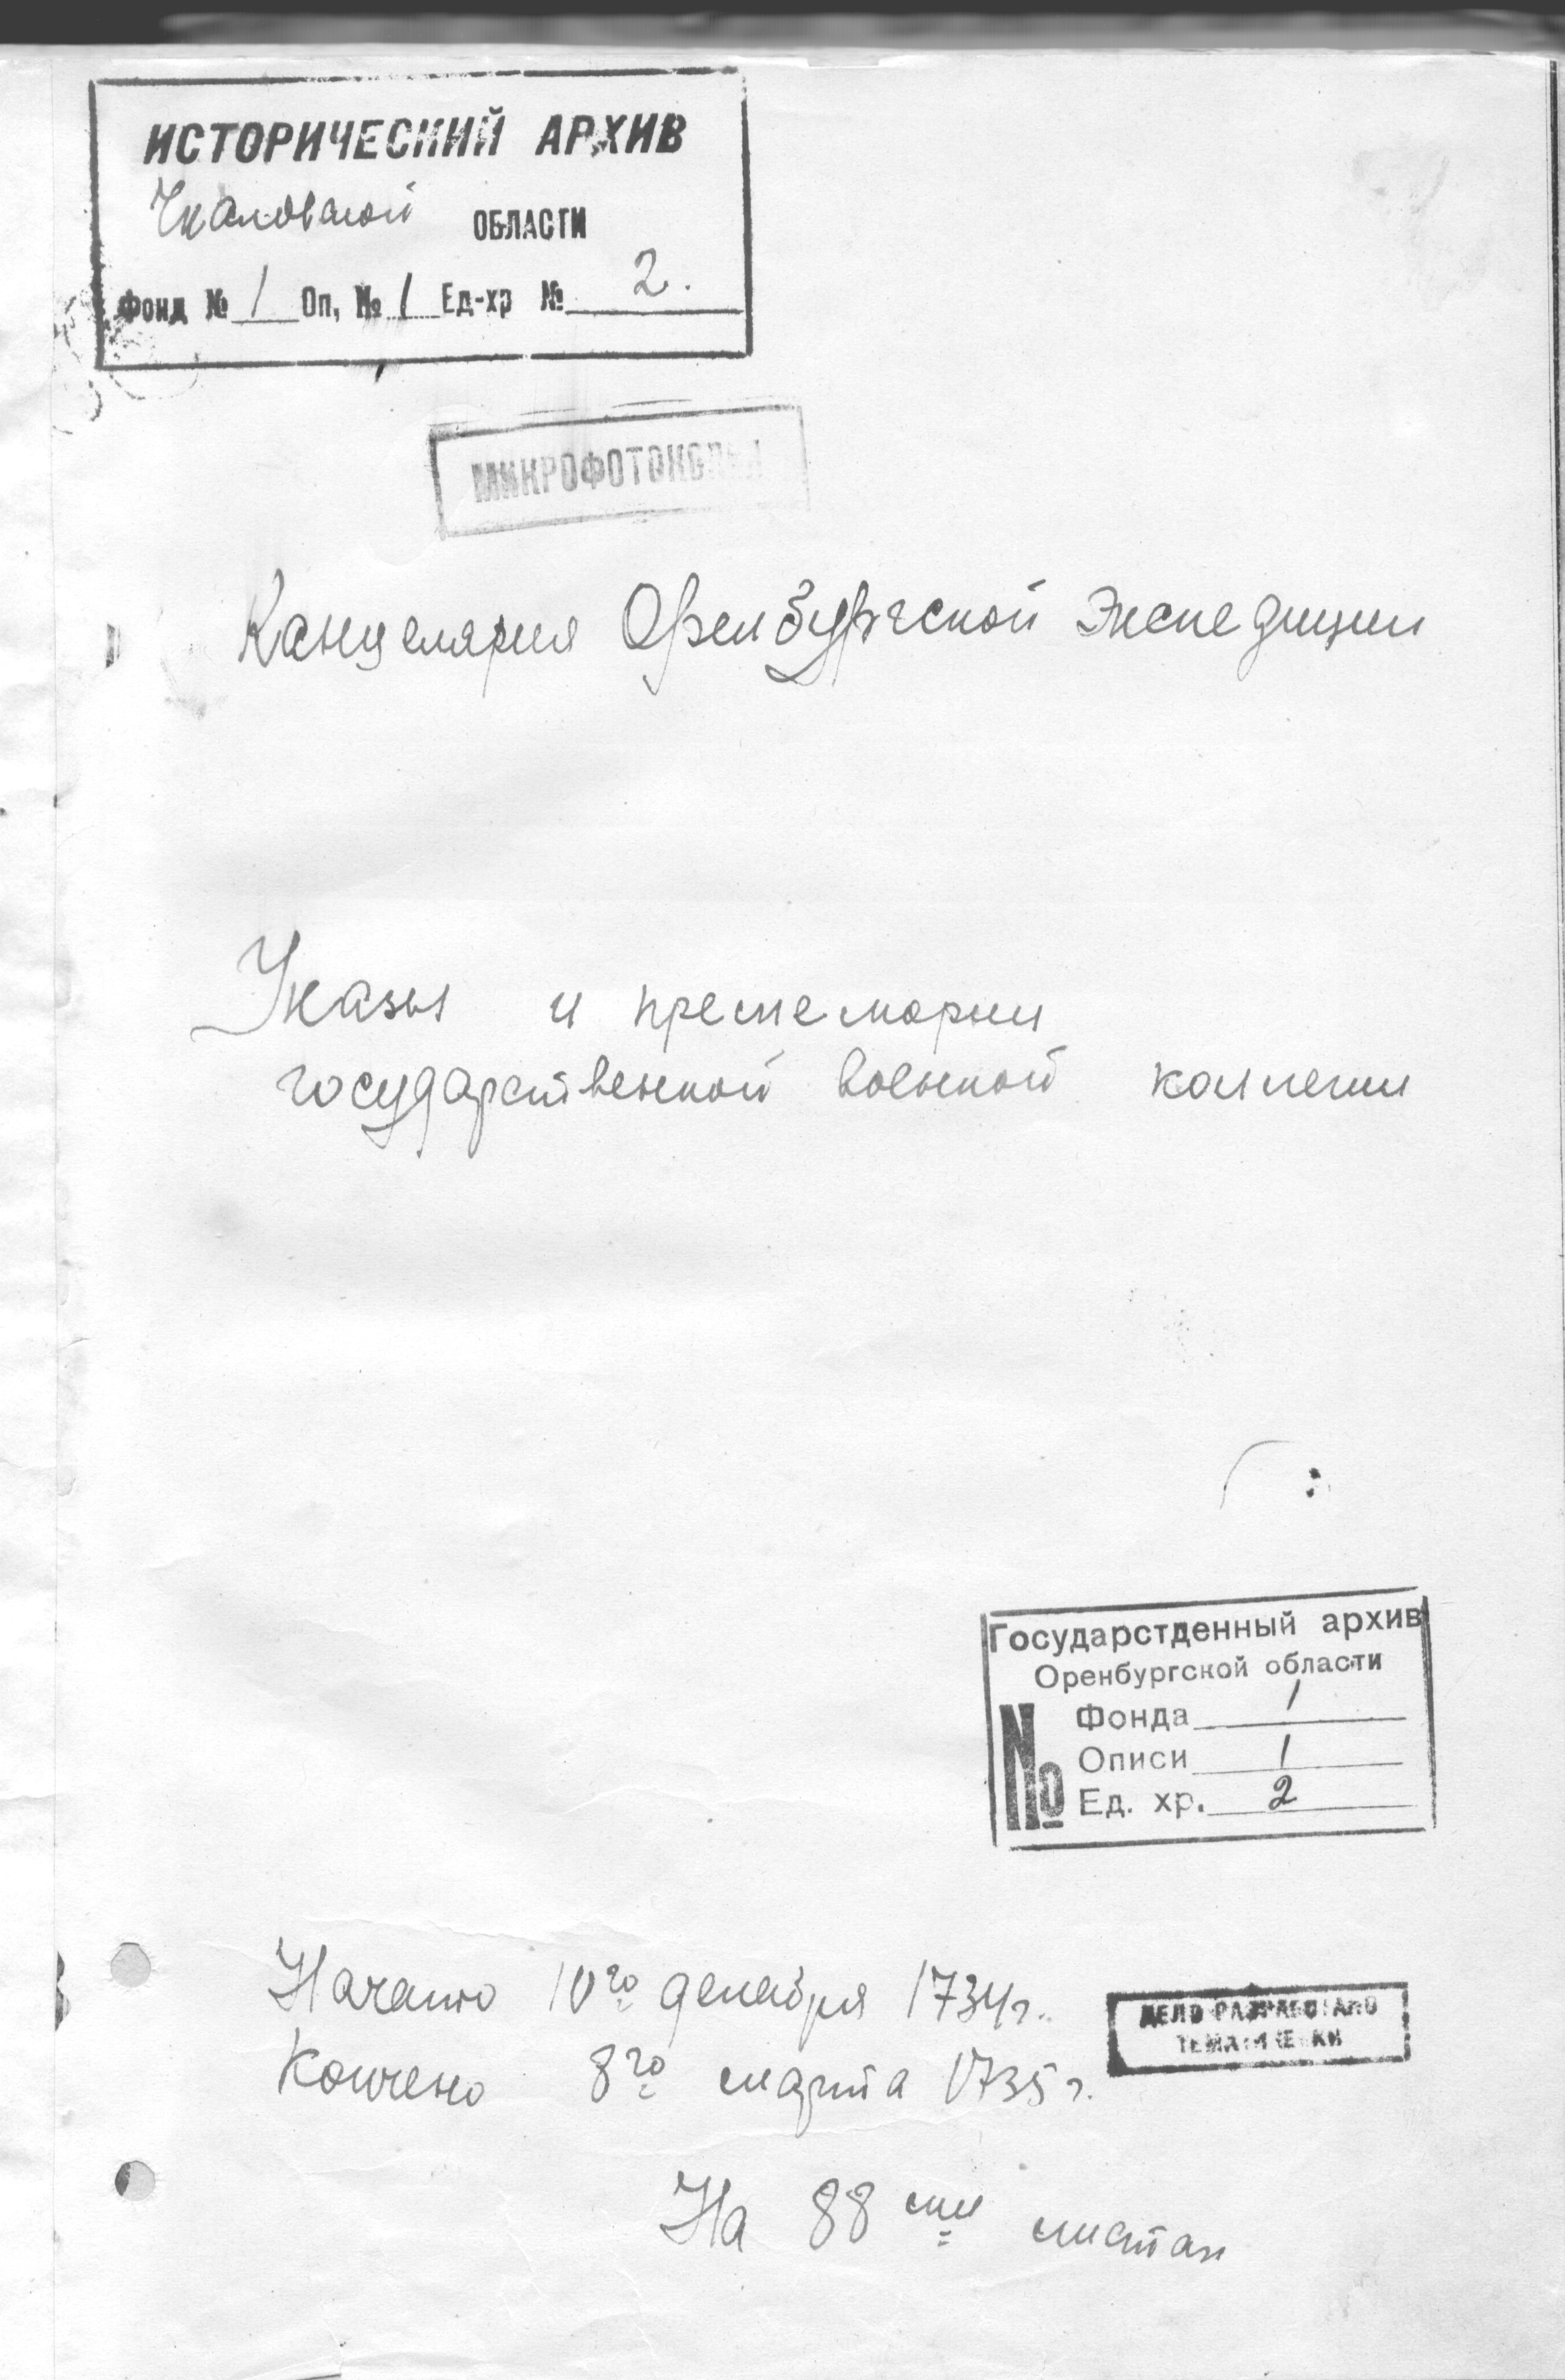 ИСТОРИЧЕСКИЙ АРХИВ
Чкаловской ОБЛАСТИ
Фонд № 1 Оп, № 1 Ед-хр № 2.
МИКРОФОТОКОПИЯ
Канцелярия Оренбургской Экспедиции
Указы и премемории
государственной военной коллегии
Государстденный архив
Оренбургской области
№
Фонда 1
Описи 1
Ед. хр. 2
Начато 10го декабря 1734г.
Кончено 8го марта 1735г.
ДЕЛО РАЗРАБОТАНО
ТЕМАТИЧЕСКИ
На 88ми листах